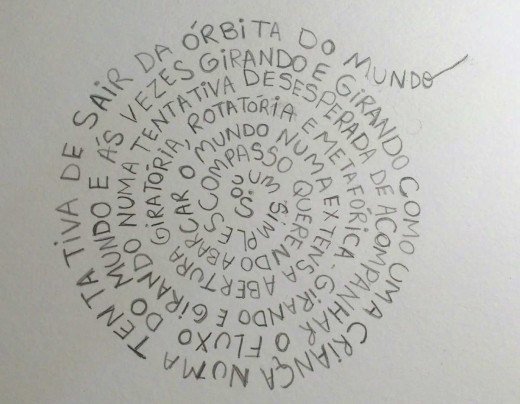 UM SIMPLES COMPASSO QUERENDO ABARCAR O MUNDO NUMA EXTENSA ABERTURA GIRATÓRIA, ROTATÓRIA E METAFÓRICA. GIRANDO E GIRANDO NUMA TENTATIVA DESESPERADA DE ACOMPANHAR O FLUXO DO MUNDO E ÁS VEZES GIRANDO E GIRANDO COMO UMA CRIANÇA NUMA TENTATIVA DE SAIR DA ÓRBITA DO MUNDO